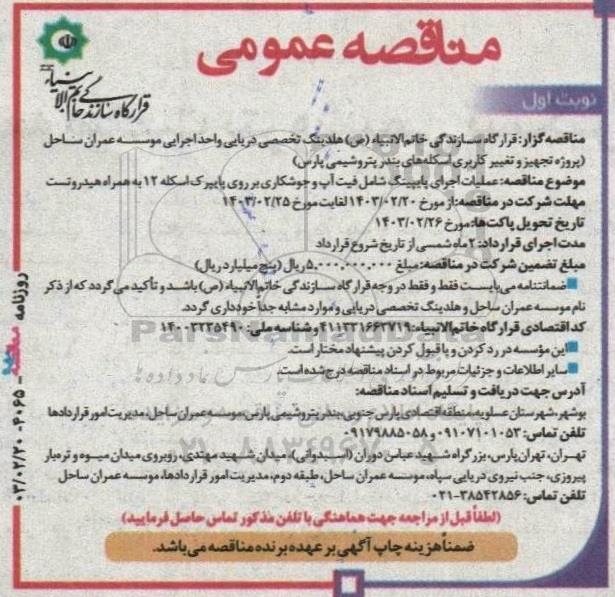 مناقصه عمومی
قرارگاه سازندگی خاتم الانبیاء
نوبت اول
مناقصه گزار: قرارگاه سازندگی خاتم‌الانبیاء (ص) هلدینگ تخصصی دریایی واحد اجرایی موسسه عمران ساحل
(پروژه تجهیز و تغییر کاربری اسکله‌های بندر پتروشیمی پارس)
موضوع مناقصه: عملیات اجرای پایپینگ شامل فیت آپ و جوشکاری بر روی پایپرک اسکله ۱۲ به همراه هیدروتست
مهلت شرکت در مناقصه: از مورخ ۱۴۰۳/۰۲/۲۰ لغایت مورخ ۱۴۰۳/۰۲/۲۵
تاریخ تحویل پاکت‌ها: مورخ ۱۴۰۳/۰۲/۲۶
مدت اجرای قرارداد: ۲ ماه شمسی از تاریخ شروع قرارداد
مبلغ تضمین شرکت در مناقصه: مبلغ ۵,۰۰۰,۰۰۰,۰۰۰ ریال (پنج میلیارد ریال)
ضمانتنامه می‌بایست فقط و فقط در وجه قرارگاه سازندگی خاتم‌الانبیاء (ص) باشد و تأکید می‌گردد که از ذکر
نام موسسه عمران ساحل و هلدینگ تخصصی دریایی و موارد مشابه جداً خودداری گردد.
کد اقتصادی قرارگاه خاتم‌الانبیاء: ۴۱۱۳۳۱۶۶۳۷۱۹ و شناسه ملی: ۱۴۰۰۳۲۳۵۴۹۰
این موسسه در رد کردن و یا قبول کردن پیشنهاد مختار است.
سایر اطلاعات و جزئیات مربوط در اسناد مناقصه درج شده است.
آدرس جهت دریافت و تسلیم اسناد مناقصه:
بوشهر، شهرستان عسلویه، منطقه اقتصادی پارس جنوبی، بندر پتروشیمی پارس، موسسه عمران ساحل، مدیریت امور قراردادها
تلفن تماس: ۰۹۱۰۷۱۰۱۰۵۳ و ۰۹۱۷۹۸۸۵۰۵۸
تهران، تهران پارس، بزرگراه شهید عباس دوران (استخر)
میدان شهید مهتدی، روبروی میدان میوه و تره‌بار
پیروزی، جنب نیروی دریایی سپاه، موسسه عمران ساحل، طبقه دوم، مدیریت امور قراردادها، موسسه عمران ساحل
تلفن تماس: ۳۸۵۴۲۸۵۶-۰۲۱
(لطفاً قبل از مراجعه جهت هماهنگی با تلفن مذکور تماس حاصل فرمایید)
ضمناً هزینه چاپ آگهی بر عهده برنده مناقصه می‌باشد.
روزنامه مناقصه - ۴۰۶۵ - ۰۳/۰۲/۲۰
ParsNamadData
۰۲۱-۸۸۳۴۹۶۷۰